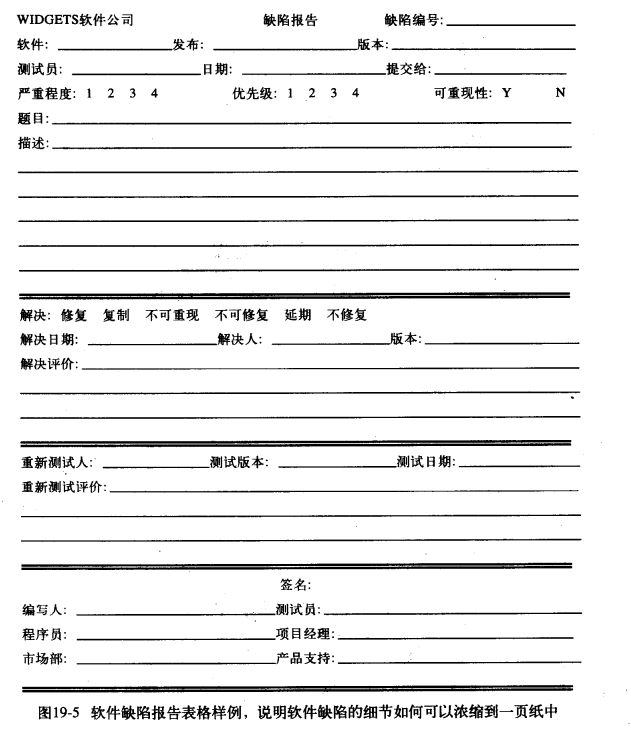 WIDGETS软件公司 缺陷报告 缺陷编号:
软件: 发布: 版本:
测试员: 日期: 提交给:
严重程度: 1 2 3 4 优先级: 1 2 3 4 可重现性: Y N
题目:
描述:
解决: 修复 复制 不可重现 不可修复 延期 不修复
解决日期: 解决人: 版本:
解决评价:
重新测试人: 测试版本: 测试日期:
重新测试评价:
签名:
编写人: 测试员:
程序员: 项目经理:
市场部: 产品支持:
图19-5 软件缺陷报告表格样例，说明软件缺陷的细节如何可以浓缩到一页纸中